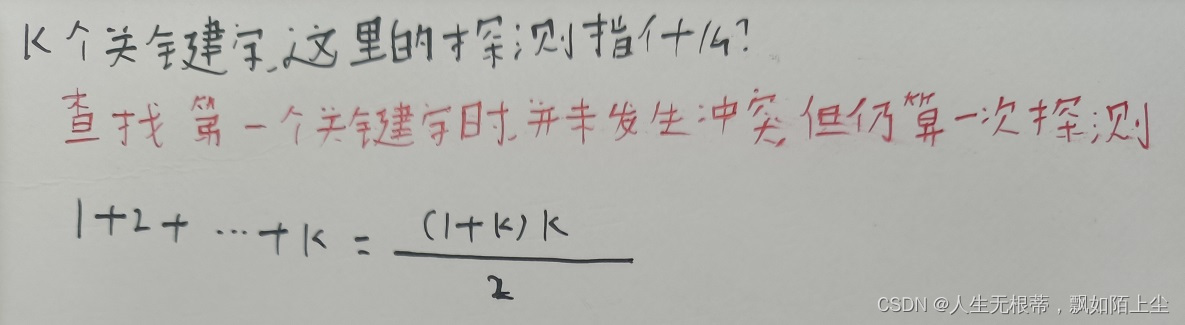 K个关键字,这里的探测指什么?
查找第一个关键字时,并未发生冲突,但仍算一次探测
1+2+…+k=(1+k)k/2
CSDN @人生无根蒂,飘如陌上尘